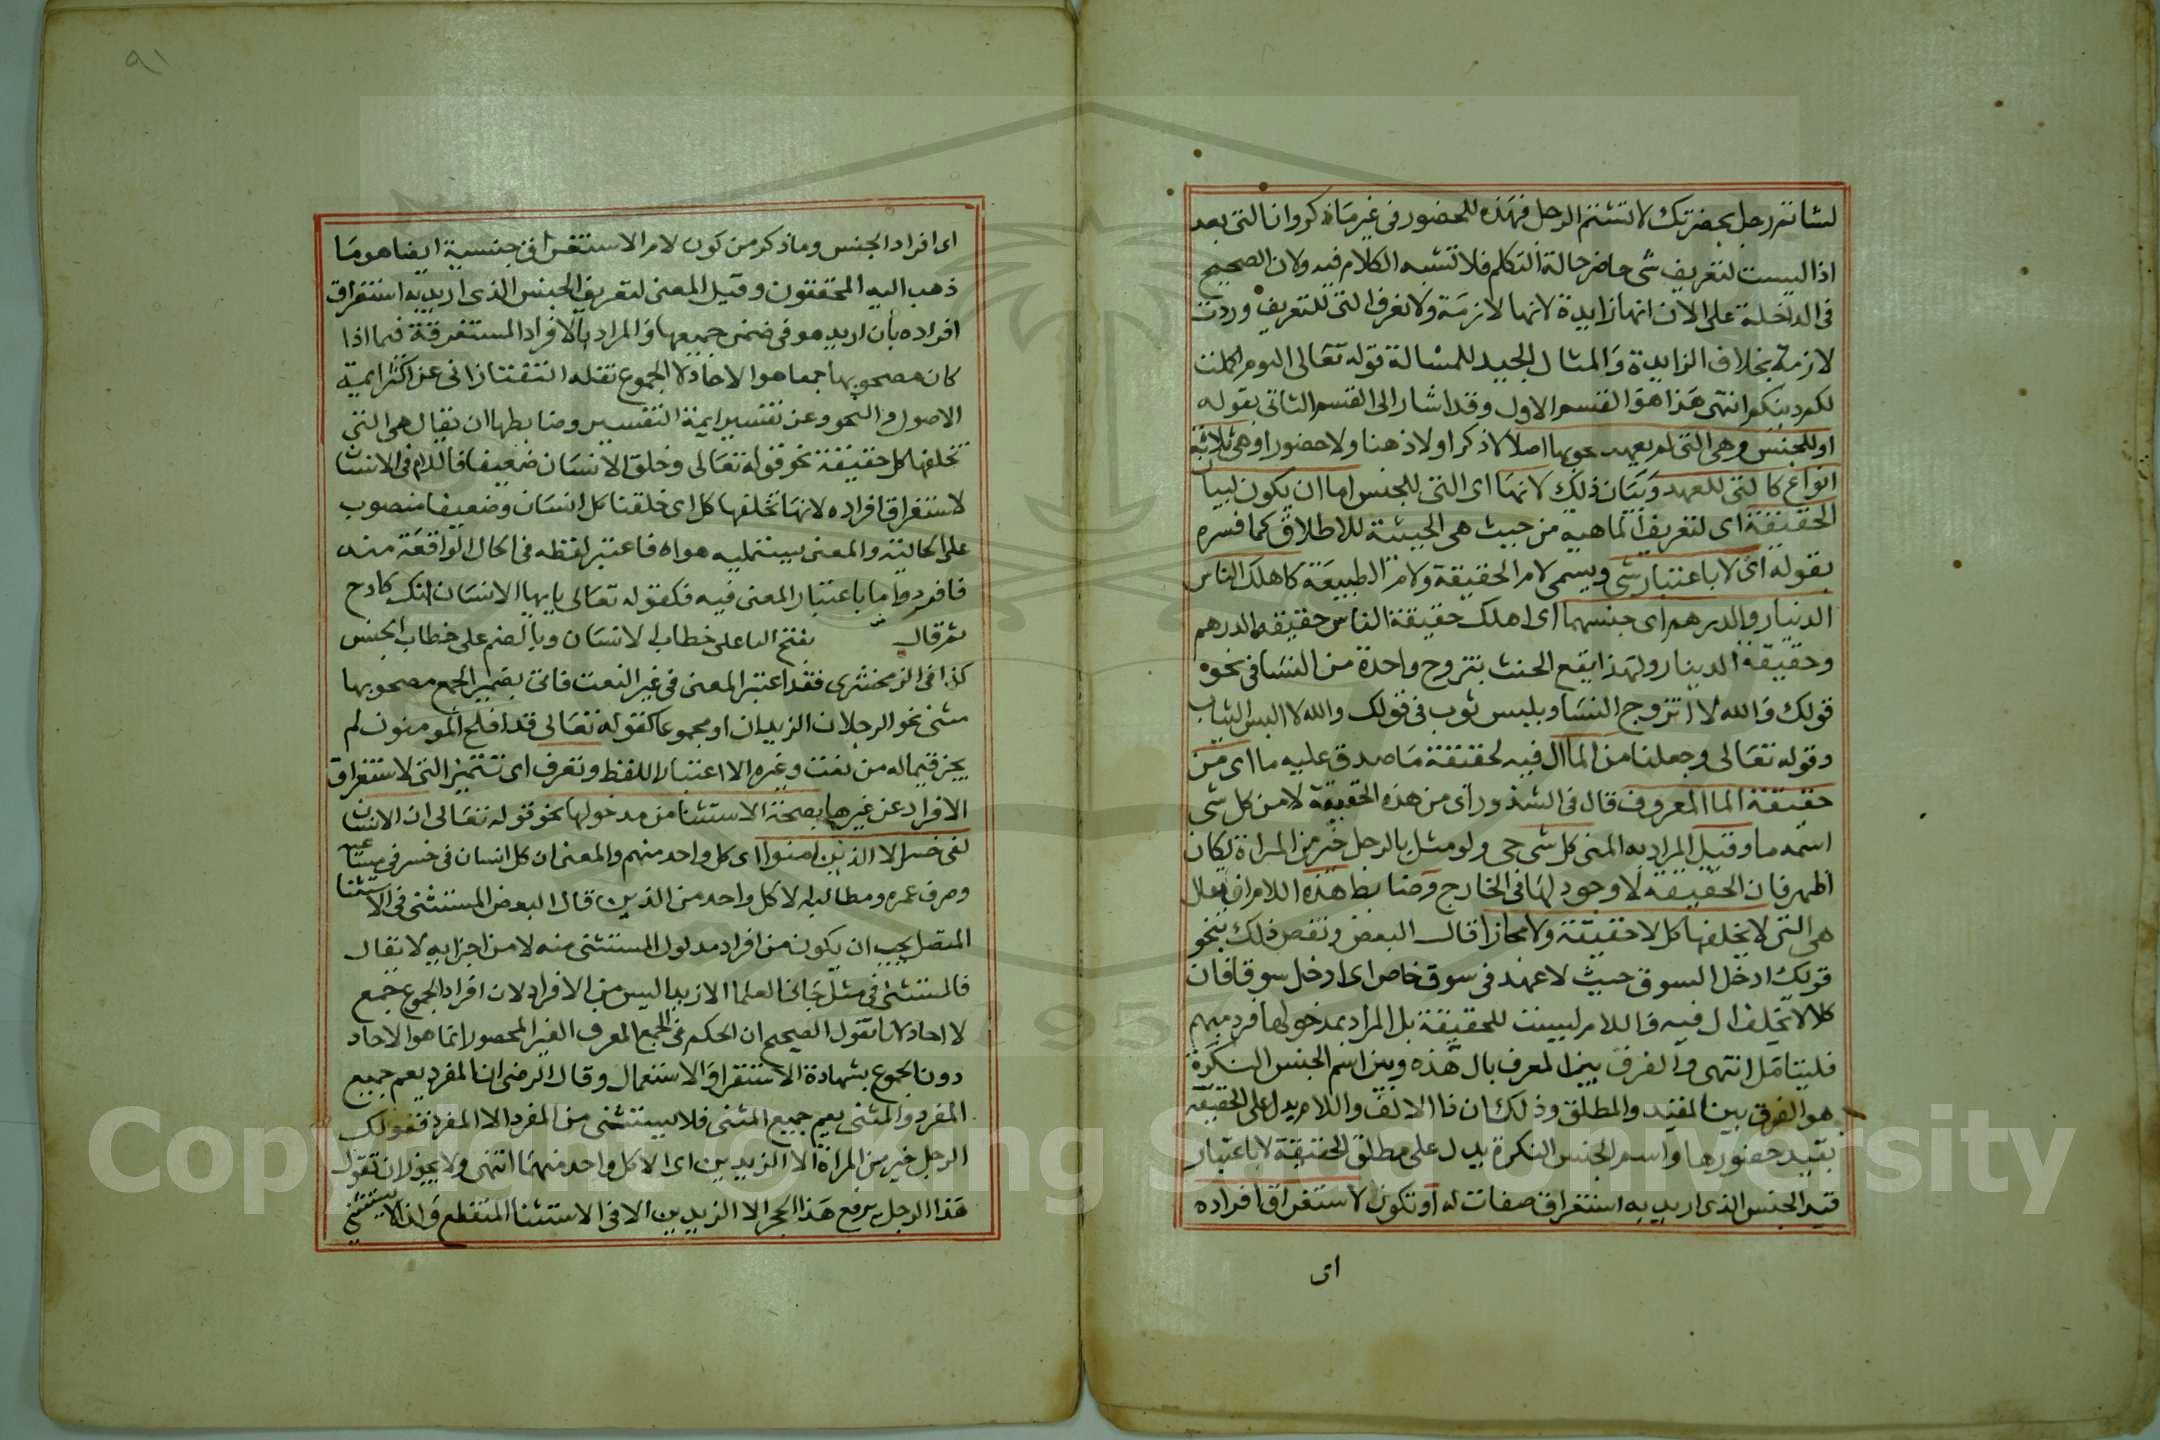 لشاتم رجل بحضرتك لا تشتم الرجل فهذه للحضور في غير ما ذكر وانا التي بعد
اذا ليست لتعريف شي حاضر حالة التكلم فلا تشبه الكلام فيه ولان الصحيح
في الداخلة على الان انها زايدة لانها لازمة ولا نعرف التي للتعريف وردت
لازمة بخلاف الزايدة والمثال الجيد للمسالة قوله تعالى اليوم اكملت
لكم دينكم انتهى هذا هو القسم الاول وقد اشار الى القسم الثاني بقوله
او للجنس وهي التي لم يعهد اصلا لا ذكرا ولا ذهنا ولا حضورا وهي ثلاثة
انواع كالتي للعهد وبيان ذلك لانها اى التي للجنس اما ان يكون لبيان
الحقيقة اى لتعريف الماهية من حيث هي الحيثية للاطلاق كما فسره
بقوله اى لا باعتبار شي ويسمى لام الحقيقة ولام الطبيعة كاهلك الناس
الدينار والدرهم اى جنسهما اى اهلك حقيقة الناس حقيقة الدرهم
وحقيقة الدينار ولهذا يقع الحنث بتزوج واحدة من النسا في نحو
قولك والله لا اتزوج النسا وبلبس ثوب في قولك والله لا البس الثياب
وقوله تعالى وجعلنا من الما ال فيه لحقيقة ما صدق عليه ما اى من
حقيقة الما المعروف قال في الشذور اى من هذه الحقيقة لا من كل شي
اسمه ما وقيل المراد به المني كل شي حي ولو مثل بالرجل خير من المراة لكان
اظهر فان الحقيقة لا وجود لها في الخارج وضابط هذه اللام ان يقال
هي التي لا يخلفها كل لا حقيقة ولا مجازا قال البعض ونقض ذلك بنحو
قولك ادخل السوق حيث لا عهد في سوق خاص اى ادخل سوقا فان
كلا لا تخلف ال فيه واللام ليست للحقيقة بل المراد بمدخولها فرد مبهم
فليتامل انتهى والفرق بين المعرف بال هذه وبين اسم الجنس النكرة
هو الفرق بين المقيد والمطلق وذلك ان الالف واللام يدل على الحقيقة
بقيد حضورها واسم الجنس النكرة يدل على مطلق الحقيقة لا باعتبار
قيد الجنس الذى اريد به استغراق صفات له او تكون لاستغراق افراده
اى
٩١
اى افراد الجنس وما ذكر من كون لام الاستغراق جنسية ايضا هو ما
ذهب اليه المحققون وقيل المعنى لتعريف الجنس الذى اريد به استغراق
افراده بان اريد هو في ضمن جميعها والمراد بالافراد المستغرقة فيما اذا
كان مصحوبها جمعا هو الاحاد لا الجموع نقله التفتازاني عن اكثر ايمة
الاصول والنحو وعن تفسير ايمة التفسير وضابطها ان يقال هي التي
تخلفها كل حقيقة نحو قوله تعالى وخلق الانسان ضعيفا فاللام في الانسان
لاستغراق افراده لانها تخلفها كل اى خلقنا كل انسان وضعيفا منصوب
على الحالية والمعنى يستميله هواه فاعتبر لفظه في الحال الواقعة منه
فافرد واما باعتبار المعنى فيه فكقوله تعالى يايها الانسان انك كادح
ثم قال بفتح البا على خطاب الانسان وبالضم على خطاب الجنس
كذا في الزمخشرى فقد اعتبر المعنى في غير النعت فاتى بضمير الجمع مصحوبها
مثنى نحو الرجلان الزيدان او مجموعا كقوله تعالى قد افلح المومنون لم
يجز فيما له من نعت وغيره الا اعتبار اللفظ وتعرف اى تتميز التي لاستغراق
الافراد عن غيرها بصحة الاستثنا من مدخولها نحو قوله تعالى ان الانسان
لفي خسر الا الذين امنوا اى كل واحد منهم والمعنى ان كل انسان في خسر في مساعيه
وصرف عمره ومطالبه لا كل واحد من الذين قال البعض المستثنى في الاستثنا
المتصل يجب ان يكون من افراد مدلول المستثنى منه لا من اجزايه لا يقال
فالمستثنى في مثل جاني العلما الا زيدا ليس من الافراد لان افراد الجموع جمع
لا احاد لانا نقول الصحيح ان الحكم في الجمع المعرف الغير المحصور انما هو الاحاد
دون الجموع بشهادة الاستقرا والاستعمال وقال الرضي ان المفرد يعم جميع
المفرد والمثنى يعم جميع المثنى فلا يستثنى من المفرد الا المفرد فقولك
الرجل خير من المراة الا الزيدين اى الا كل واحد منهما انتهى ولا يجوز ان تقول
هذا الرجل يرفع هذا الحجر الا الزيدين الا في الاستثنا المنقطع واذا لا يستثنى
Copyright © King Saud University